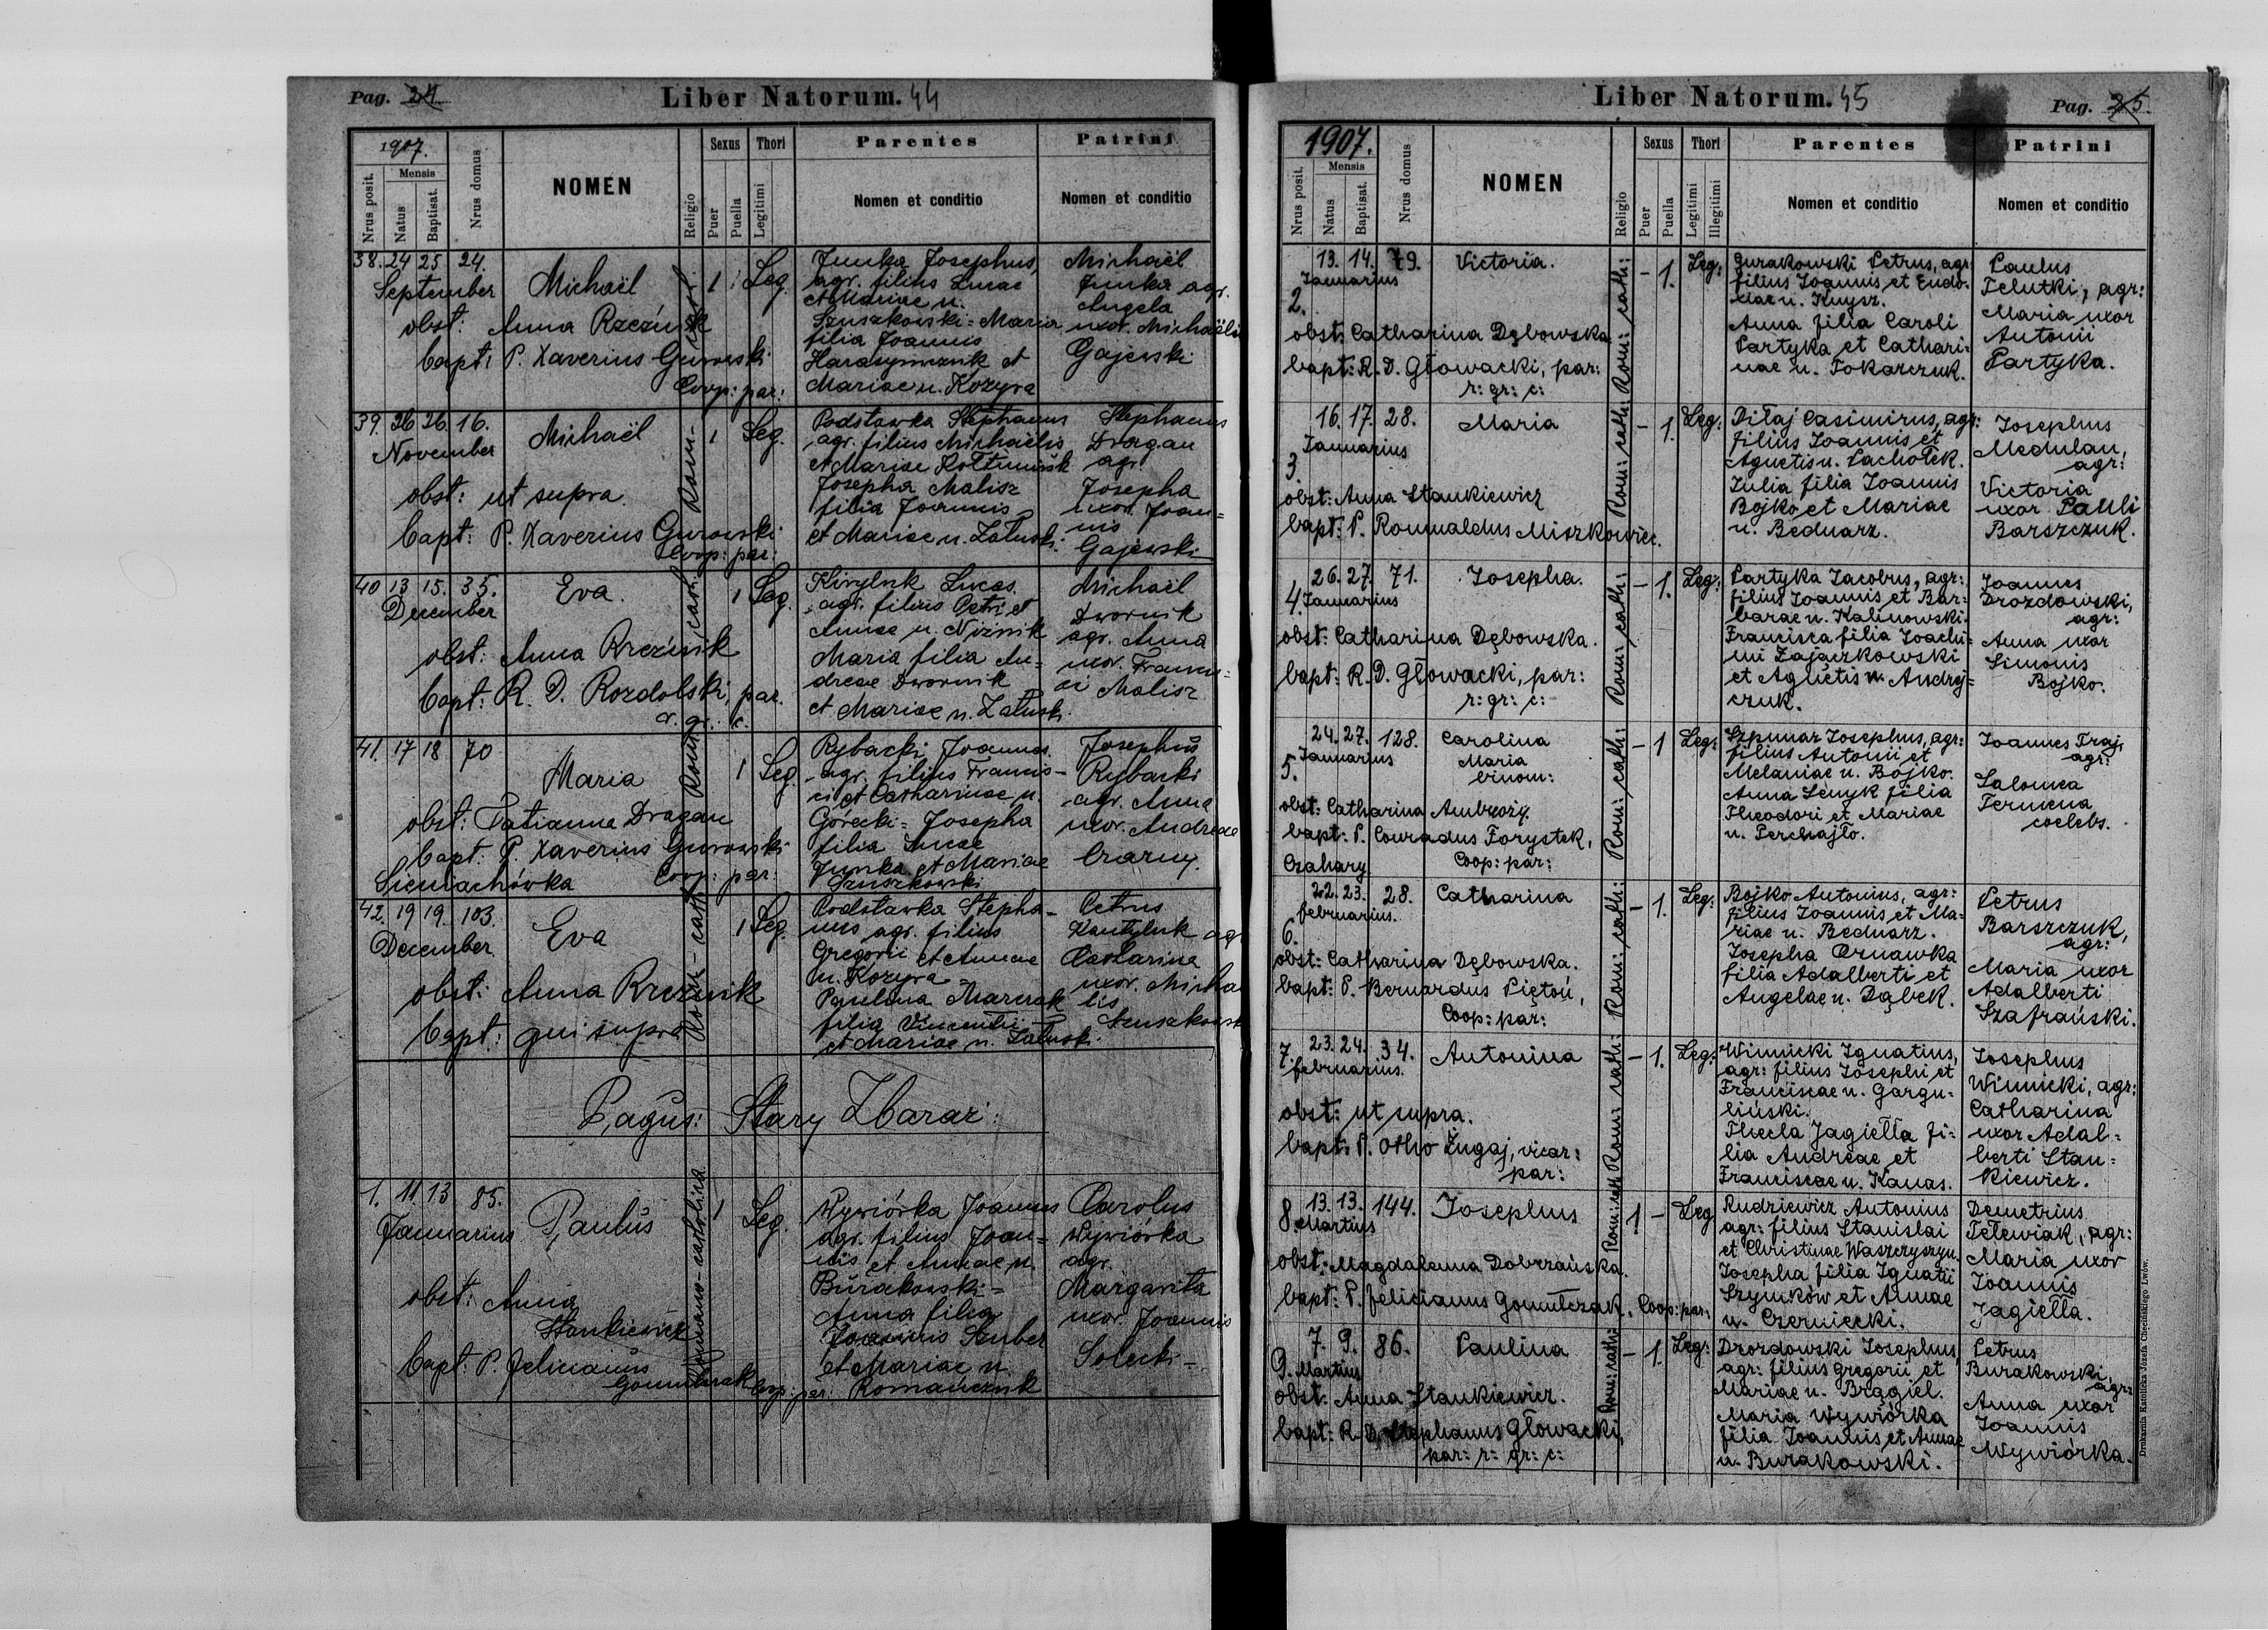 Pag. 24
Liber Natorum. 44
1907.
Mensis
Nrus posit.
Natus
Baptisat.
Nrus domus
NOMEN
Religio
Sexus
Puer
Puella
Thori
Legitimi
Parentes
Nomen et conditio
Patrini
Nomen et conditio
38. 24 25 24.
September
Michaël
1 Leg.
obst: Anna Rzeźnik
bapt: P. Xaverius Gurowski
Coop: par:
Junka Josephus,
agr. filius Lucae
et Mariae n.
Szuszkowski = Maria
filia Joannis
Harasymczuk et
Mariae n. Kozyra
Michaël
Junka agr.
Angela
uxor. Michaëlis
Gajewski
39. 26 26. 16.
November
Michaël
1 Leg.
obst: ut supra
bapt: P. Xaverius Gurowski
Coop: par:
Podstawka Stephanus
agr. filius Michaëlis
et Mariae
Josepha Malisz
filia Joannis
et Mariae n. Załuski.
Stephanus
Dragan
agr.
Josepha
uxor. Joan=
nis
Gajewski
40 13 15. 35.
December
Eva.
1 Leg.
obst: Anna Rzeźnik
bapt: R. D. Rozdolski, par.
r. gr. c.
Lucas
agr. filius Petri et
Annae n. Niżnik
Maria filia An=
dreae Dwornik
et Mariae n. Załuski.
Michaël
Dwornik
agr. Anna
uxor. Francis=
ci Malisz
41. 17 18 70
Maria
1 Leg.
obst: Tatianna Dragan
bapt: P. Xaverius Gurowski
Sieniachówka Coop: par:
Rybacki Joannes
agr. filius Francis=
ci et Catharinae n.
Górecki = Josepha
filia Lucae
Junka et Mariae
Szuszkowski
Josephus
Rybacki
agr. Anna
uxor. Andreae
Czarny.
42. 19 19. 103.
December
Eva
1 Leg.
obst: Anna Rzeźnik
bapt: qui supra
Podstawka Stepha-
nus agr. filius
Gregorii et Annae
n. Kozyra -
Paulina Marczak
filia Vincentii
et Mariae n. Załuski.
Petrus
agr
Catharina
uxor. Micha
lis
Szuszkowski
Rom - cath.
Pagus: Stary Zbaraż:
1. 11 13 85.
Januarius
Paulus
1 Leg.
obst: Anna
Stankiewicz
bapt: P. Felicianus
Gomułczak Coop: par:
Romano-catholica
Wywiórka Joannes
agr. filius Joan=
nis et Annae n.
Burakowski =
Anna filia
Joannis Szuber
et Mariae n.
Romańczuk
Carolus
Wywiórka
agr.
Margarita
uxor. Joannis
Solecki =
Liber Natorum. 45
Pag. 25.
1907.
Mensis
Nrus posit.
Natus
Baptisat.
Nrus domus
NOMEN
Religio
Sexus
Puer
Puella
Thori
Legitimi
Illegitimi
Parentes
Nomen et conditio
Patrini
Nomen et conditio
13. 14. 79. Victoria.
Januarius
2.
- 1. Leg:
obst: Catharina Dębowska
bapt: R. D. Głowacki, par:
r: gr: c:
Rom: cath:
Burakowski Petrus, agr:
filius Joannis et Eudo-
xiae n. Knysz.
Anna filia Caroli
Partyka et Cathari-
nae n. Tokarczuk.
Paulus
Telutki, agr:
Maria uxor
Antonii
Partyka.
16. 17. 28. Maria
Januarius
3.
- 1. Leg:
obst: Anna Stankiewicz
bapt: P. Romualdus Miszkowicz.
Rom: cath:
Diłaj Casimirus, agr:
filius Joannis et
Agnetis n. Pachołek.
Julia filia Joannis
Bojko et Mariae
n. Bednarz.
Josephus
Medulan,
agr:
Victoria
uxor Pauli
Barszczuk.
26. 27. 71. Josepha.
4. Januarius
- 1. Leg:
obst: Catharina Dębowska.
bapt: R. D. Głowacki, par:
r: gr: c:
Rom: cath:
Partyka Jacobus, agr:
filius Joannis et Bar-
barae n. Kalinowski.
Francisca filia Joachi-
mi Zajączkowski
et Agnetis n. Andrij-
czuk.
Joannes
Drozdowski,
agr:
Anna uxor
Simonis
Bojko.
24. 27. 128. Carolina
Januarius Maria
5. binom:
- 1 Leg:
obst: Catharina Ambroży.
bapt: P. Conradus Forystek,
Czahary Coop: par:
Rom: cath:
Szpunar Josephus, agr:
filius Antonii et
Melaniae n. Bojko.
Anna Senyk filia
Theodori et Mariae
n. Perchajło.
Joannes Fraj,
agr:
Salomea
Termena
coelebs.
22. 23. 28. Catharina
februarius.
6.
- 1. Leg:
obst: Catharina Dębowska.
bapt: P. Bernardus Piętoń,
Coop: par:
Rom: cath:
Bojko Antonius, agr:
filius Joannis et Ma-
riae n. Bednarz.
Josepha Ornawka
filia Adalberti et
Angelae n. Dąbek.
Petrus
Barszczuk,
agr:
Maria uxor
Adalberti
Szafrański.
7. 23. 24. 34. Antonina
februarius.
- 1. Leg:
obst: ut supra.
bapt: P. Otho Żugaj, vicar:
par:
Rom: cath:
Winnicki Ignatius,
agr: filius Josephi et
Franciscae n. Gargu-
liński.
Thecla Jagiełła fi-
lia Andreae et
Franciscae n. Kanas.
Josephus
Winnicki, agr:
Catharina
uxor Adal-
berti Stan-
kiewicz.
13. 13. 144. Josephus
8. Martius
1 - Leg
obst: Magdalenna Dobrzańska.
bapt: P. felicianus Gomułczak. Coop: par:
Rom: cath
Rudziewicz Antonius
agr: filius Stanislai
et Christinae Waszczyszyn.
Josepha filia Ignatii
Szymków et Annae
n. Czerniecki.
Demetrius
Telewiak, agr:
Maria uxor
Joannis
Jagiełła.
7. 9. 86. Paulina
9. Martius
- 1. Leg:
obst: Anna Stankiewicz.
bapt: R. D. Stephanus Głowacki,
par: r: gr: c:
Rom: cath:
Drozdowski Josephus,
agr: filius Gregorii et
Mariae n. Brągiel.
Maria Wywiórka
filia Joannis et Annae
n. Burakowski.
Petrus
Burakowski,
agr:
Anna uxor
Joannis
Wywiórka.
Drukarnia Katolicka Józefa Chęcińskiego Lwów.